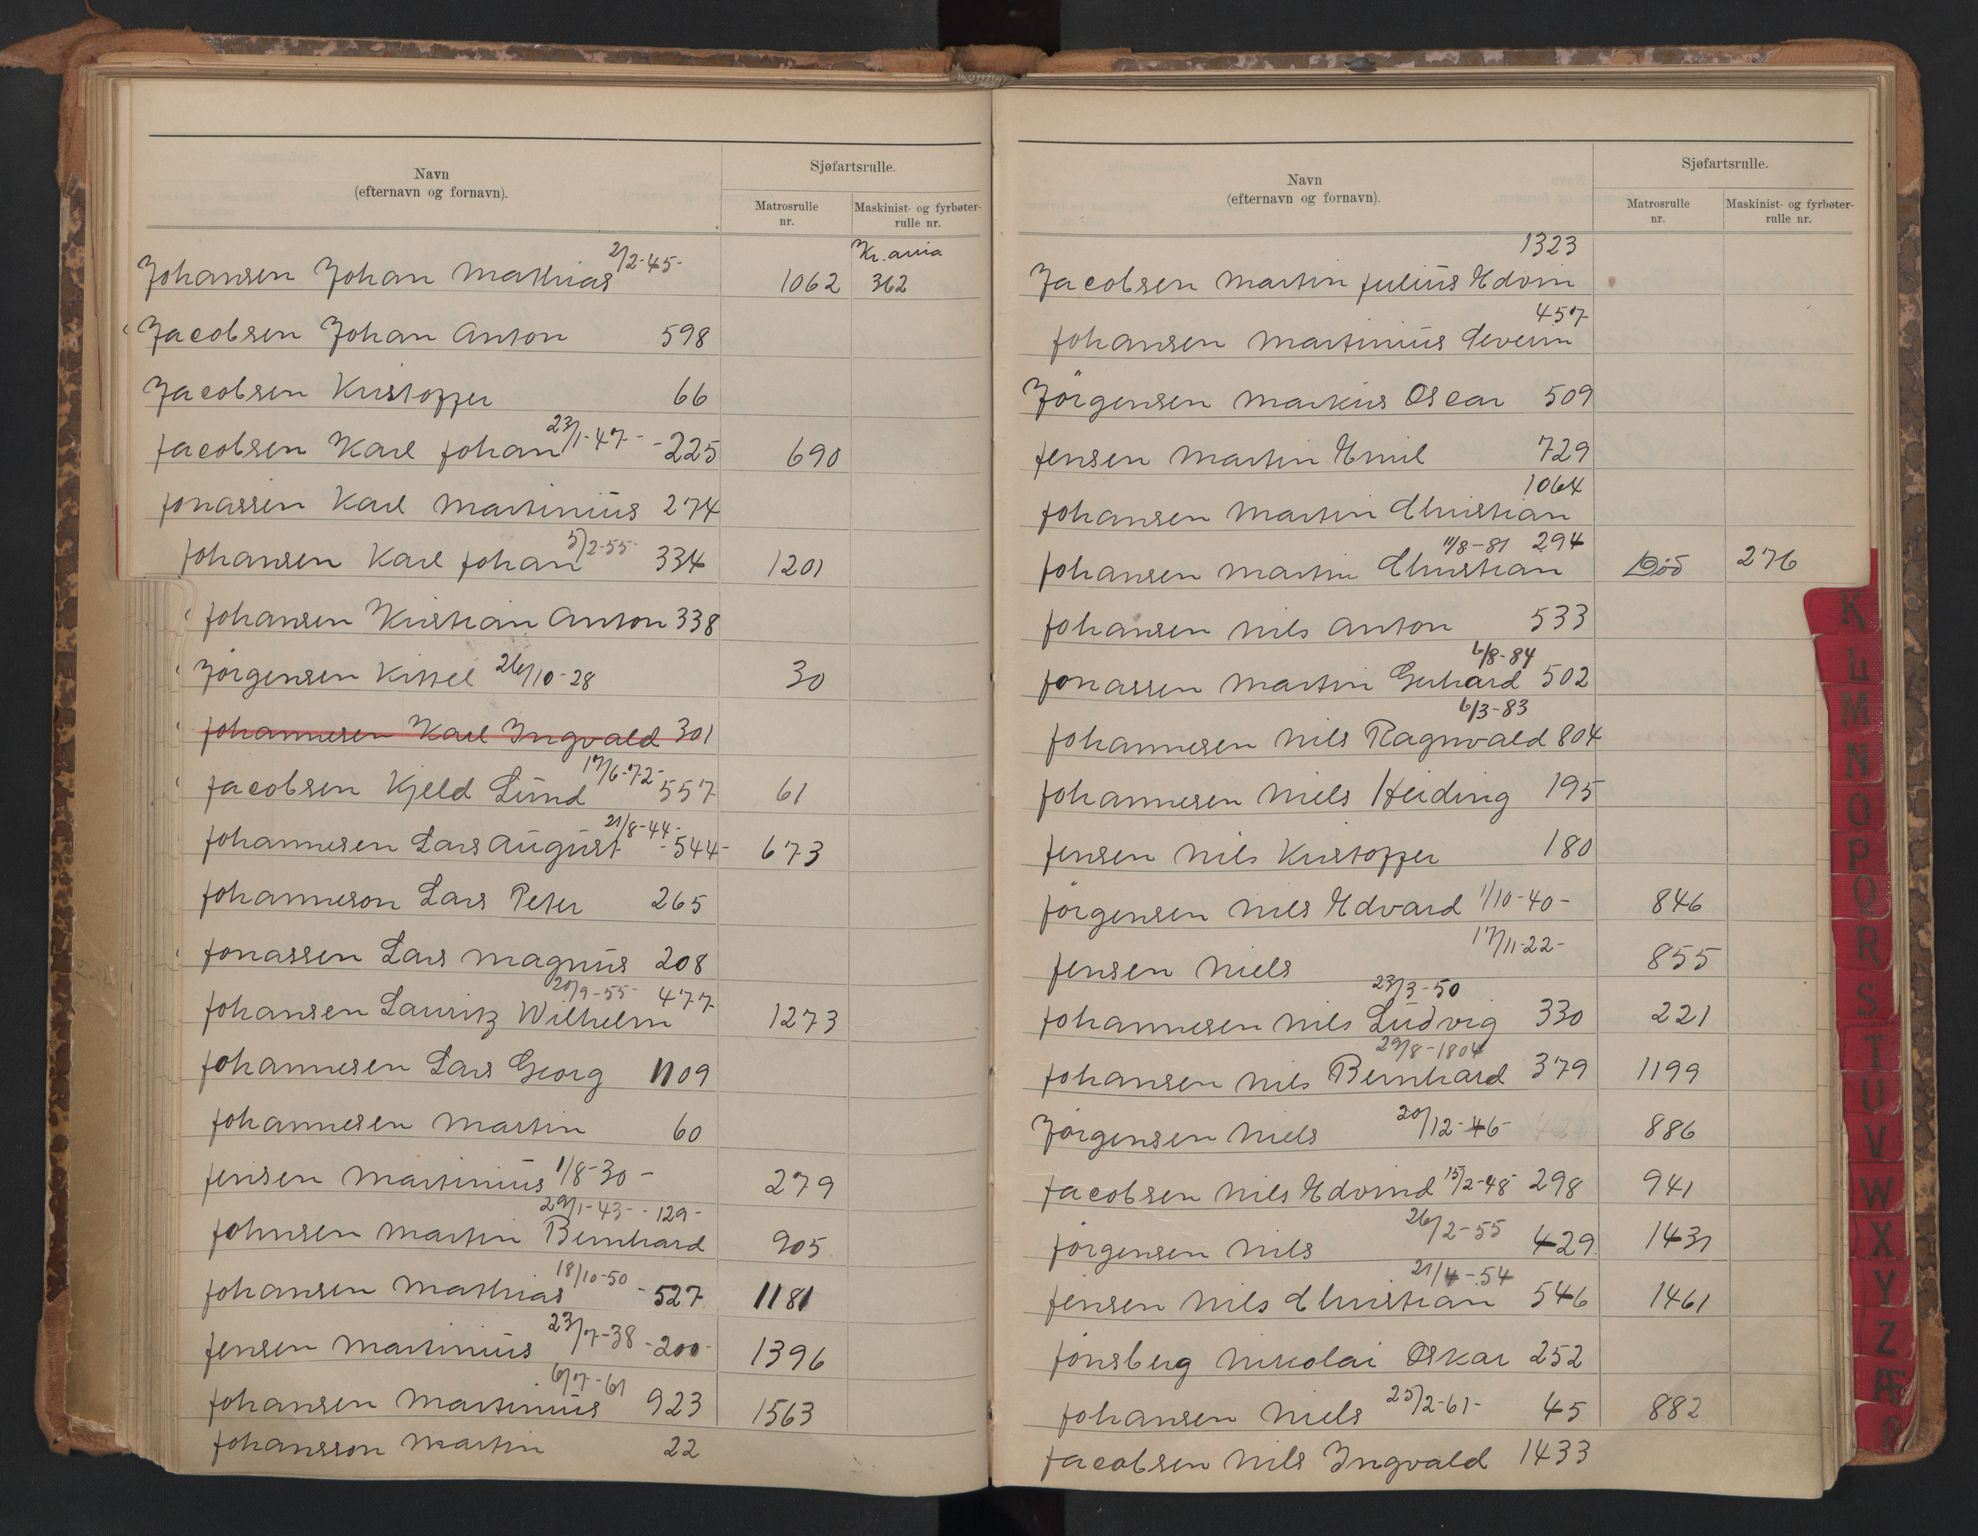 Navn
(efternavn og fornavn).
Sjøfartsrulle.
Matrosrulle nr.
Maskinist- og fyrbøter-rulle nr.
Johansen Johan Mathias 2/2-45- 1062 Kr.ania 362
Jacobsen Johan Anton 598
Jacobsen Kristoffer 66
Jacobsen Karl Johan 23/1-47- -225 690
Jonassen Karl Martinius 274
Johansen Karl Johan 5/2-55- 334 1201
Johansen Kristian Anton 338
Jørgensen Kittel 26/10-28 30
Johannesen Karl Ingvald 301
Jacobsen Kjeld Lund 17/6-72- 557 61
Johannesen Lars August 21/8-44- -544- 673
Johanneson Lars Peter 265
Jonassen Lars Magnus 208
Johansen Lauritz Wilhelm 20/9-55- 477 1273
Johannesen Lars Georg 1109
Johannesen Martin 60
Jensen Martinius 1/8-30- 279
Johnsen Martin Bernhard 29/1-43- -129- 905
Johansen Mathias 18/10-50 -527 1181
Jensen Martinius 23/7-38 -200- 1396
Johansen Martinius 6/7-61 923 1563
Johansson Martin 22
Navn
(efternavn og fornavn).
Sjøfartsrulle.
Matrosrulle nr.
Maskinist- og fyrbøter-rulle nr.
Jacobsen Martin Julius Edvin 1323
Johansen Martinius Severin 457
Jørgensen Markus Oscar 509
Jensen Martin Emil 729
Johansen Martin Christian 1064
Johansen Martin Christian 11/8-81 294 Død 276
Johansen Nils Anton 533
Jonassen Martin Gerhard 6/8-84 502
Johannesen Nils Ragnvald 6/3-83 804
Johannesen Niels Heiding 195
Jensen Nils Kristoffer 180
Jørgensen Nils Edvard 1/10-40- 846
Jensen Niels 17/11-22- 855
Johannesen Nils Ludvig 23/3-50 330 221
Johansen Nils Bernhard 29/8-1804 379 1199
Jørgensen Niels 20/12-46- 886
Jacobsen Nils Edvind 15/2-48- 298 941
Jørgensen Nils 26/2-55 429 1431
Jensen Nils Christian 21/4-54 546 1461
Jønsberg Nikolai Oskar 252
Johansen Niels 25/2-61- 45 882
Jacobsen Nils Ingvald 1433
K
L
M
N
O
P
Q
R
S
T
U
V
W
X
Y
Z
Æ